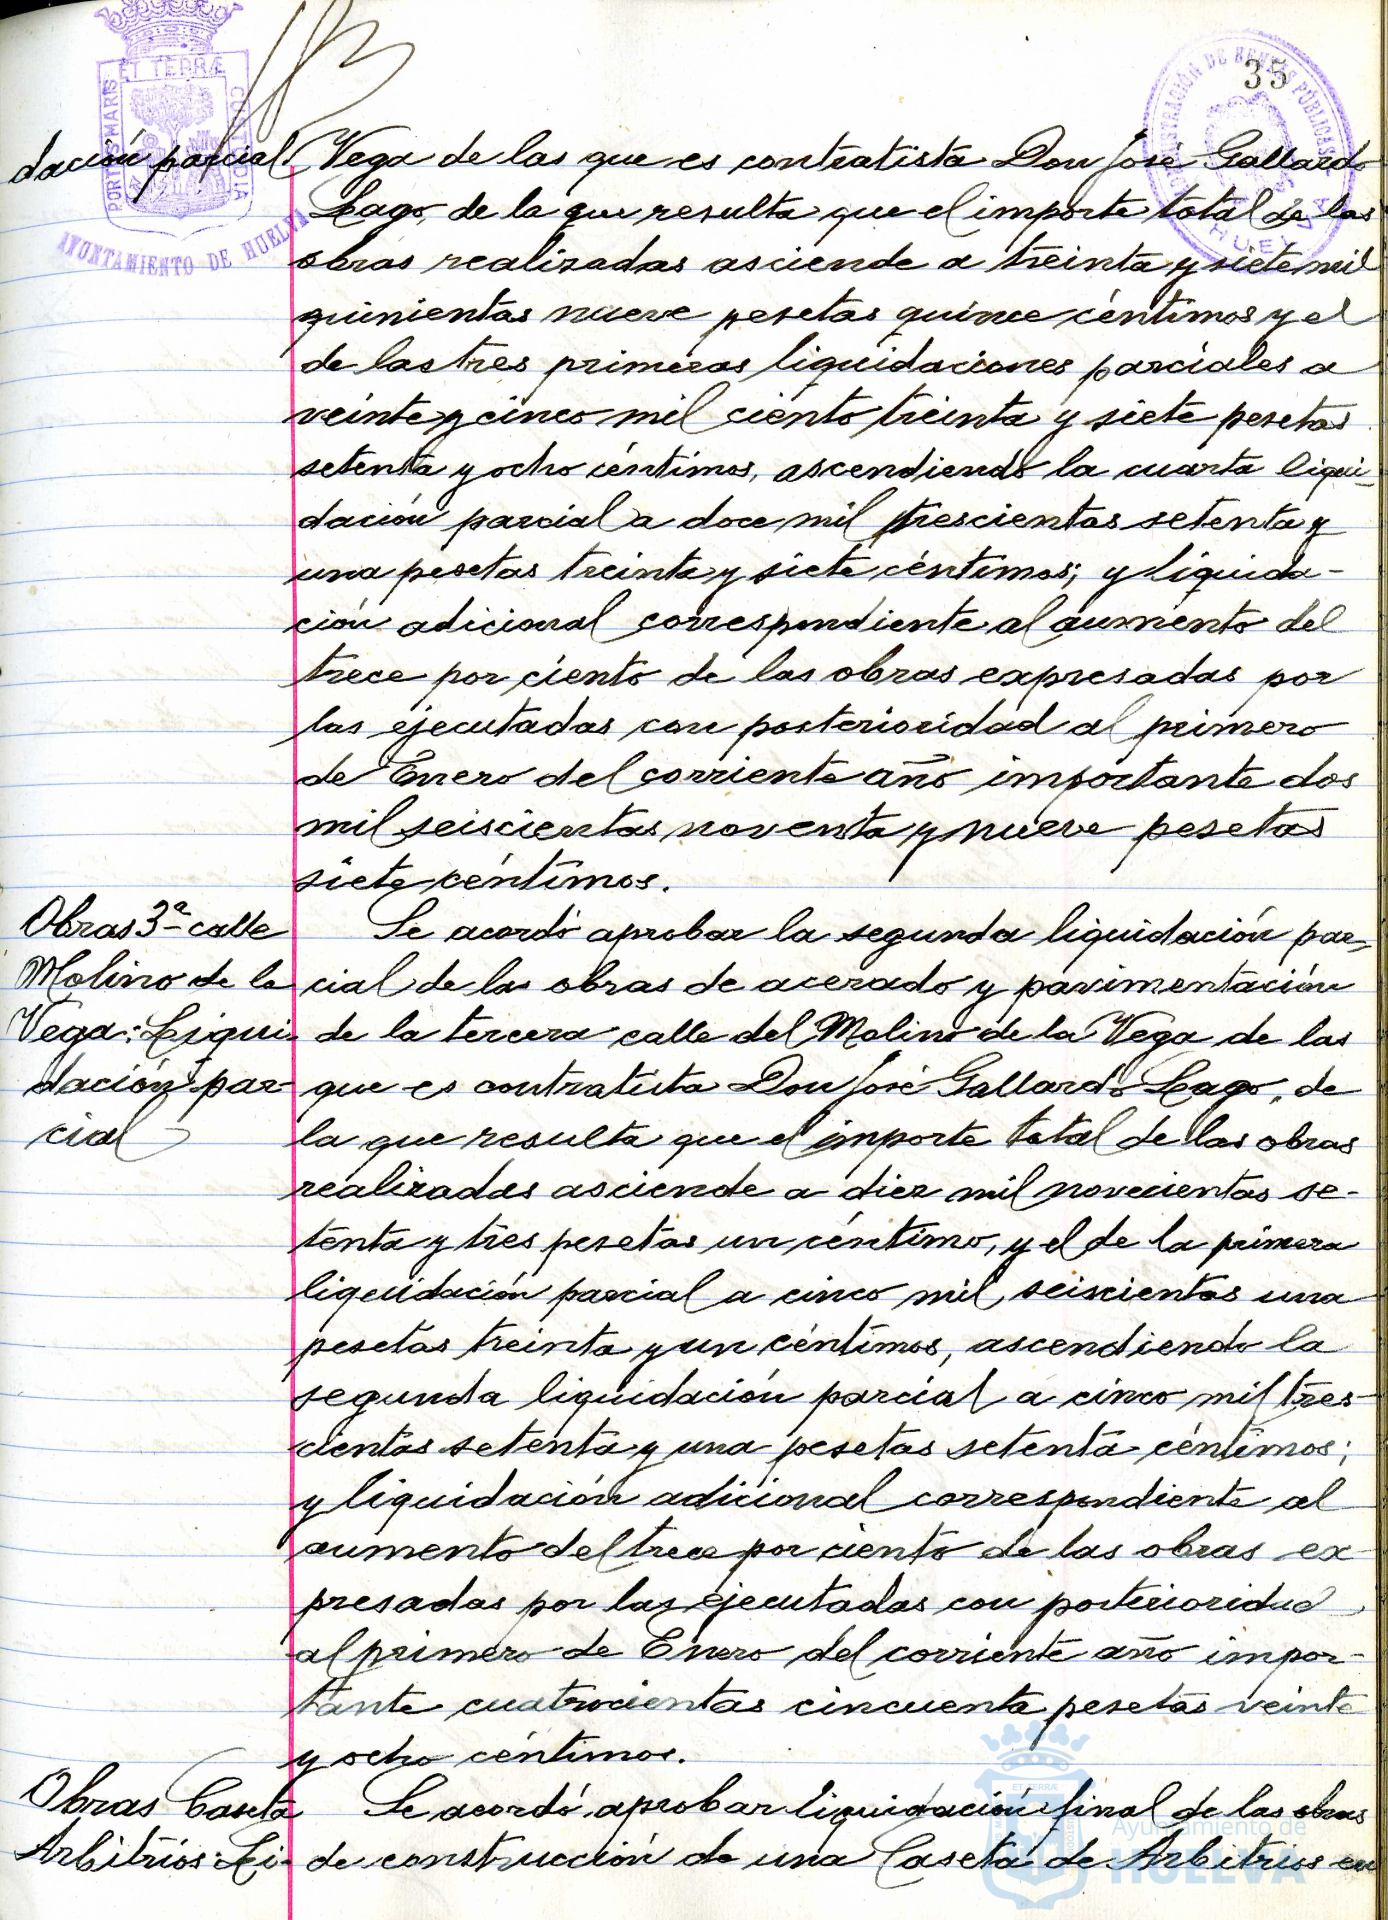 35
PORTUS MARIS ET TERRÆ CUSTODIA
AYUNTAMIENTO DE HUELVA
dación parcial. Vega de las que es contratista Don José Gallardo
Lago, de la que resulta que el importe total de las
obras realizadas asciende a treinta y siete mil
quinientas nueve pesetas quince céntimos y el
de las tres primeras liquidaciones parciales a
veinte y cinco mil ciento treinta y siete pesetas
setenta y ocho céntimos, ascendiendo la cuarta liqui-
dación parcial a doce mil trescientas setenta y
una pesetas treinta y siete céntimos; y liquida-
ción adicional correspondiente al aumento del
trece por ciento de las obras expresadas por
las ejecutadas con posterioridad al primero
de Enero del corriente año importante dos
mil seiscientas noventa y nueve pesetas
siete céntimos.
Obras 3ª calle
Molino de la
Vega: Liqui-
dación par-
cial
Se acordó aprobar la segunda liquidación par-
cial de las obras de acerado y pavimentación
de la tercera calle del Molino de la Vega de las
que es contratista Don José Gallardo Lago, de
la que resulta que el importe total de las obras
realizadas asciende a diez mil novecientas se-
tenta y tres pesetas un céntimo, y el de la primera
liquidación parcial a cinco mil seiscientas una
pesetas treinta y un céntimos, ascendiendo la
segunda liquidación parcial a cinco mil tres-
cientas setenta y una pesetas setenta céntimos;
y liquidación adicional correspondiente al
aumento del trece por ciento de las obras ex-
presadas por las ejecutadas con posterioridad
al primero de Enero del corriente año impor-
tante cuatrocientas cincuenta pesetas veinte
y ocho céntimos.
Obras Caseta
Arbitrios: Li-
Se acordó aprobar liquidación final de las obras
de construcción de una Caseta de Arbitrios en
Ayuntamiento de
HUELVA